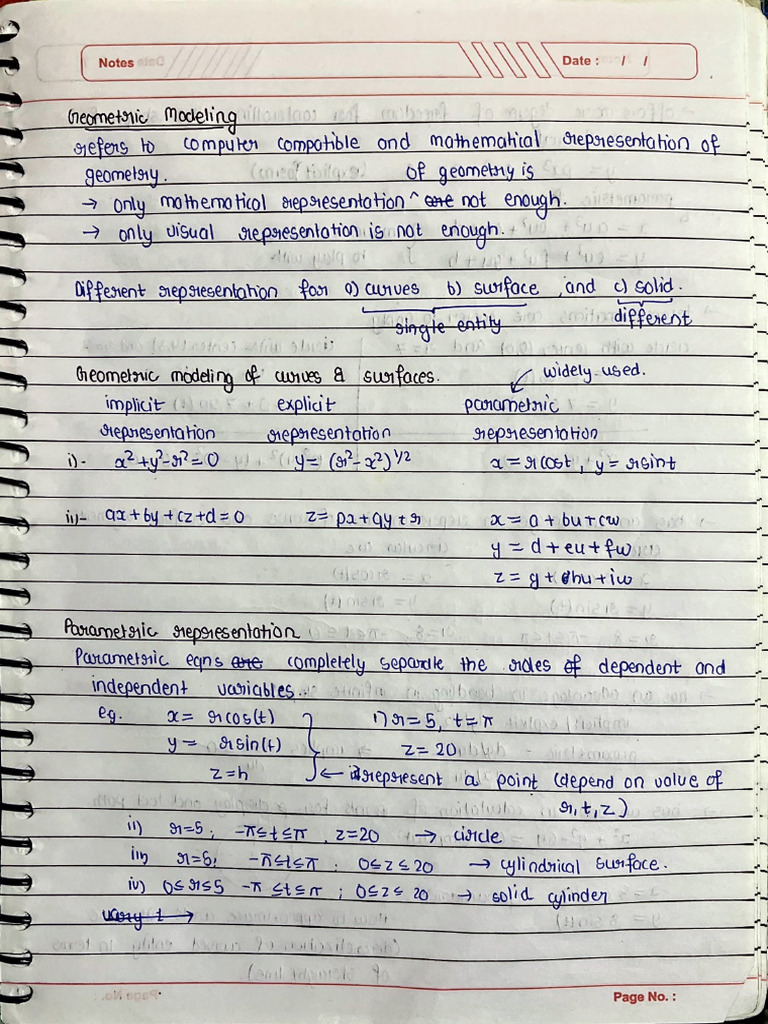 Notes
Date : / /
Geometric Modeling
refers to computer compatible and mathematical representation of
geometry.
of geometry is
→ only mathematical representation ^ are not enough.
→ only visual representation is not enough.
Different representation for a) curves b) surface, and c) solid.
single entity different
Geometric modeling of curves & surfaces. widely used.
implicit explicit parametric
representation representation representation
i)- x²+y²-r²=0 y=(r²-x²)^1/2 x=rcost, y=rsint
ii)- ax+by+cz+d=0 z=px+qy+r x=a+bu+cw
y=d+eu+fw
z=g+hu+iw
Parametric representation
Parametric eqns are completely separate the roles of dependent and
independent variables.
eg. x= rcos(t) i) r=5, t=π
y= rsin(t) z=20
z=h ← represent a point (depend on value of
r,t,z)
ii) r=5; -π≤t≤π, z=20 → circle
iii) r=5; -π≤t≤π; 0≤z≤20 → cylindrical surface.
iv) 0≤r≤5 -π≤t≤π; 0≤z≤20 → solid cylinder
vary t →
Page No. :